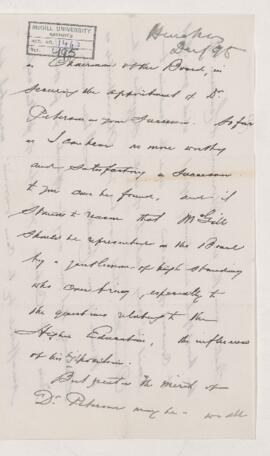 McGILL UNIVERSITY
ARCHIVES
ACC. NO.
REF.
Dec/95
as Chairman of the Board, in
securing the appointment of Dr.
Peterson as your Successor. So far
as I can hear no more worthy
and satisfactory a Successor
to you could be found, and it
stands to reason that McGill
should be represented on the Board
by a gentleman of high standing
who can bring, especially to
the questions relating to the
Higher Education, the influence
of his position.
But great as the merit of
Dr. Peterson may be - we all